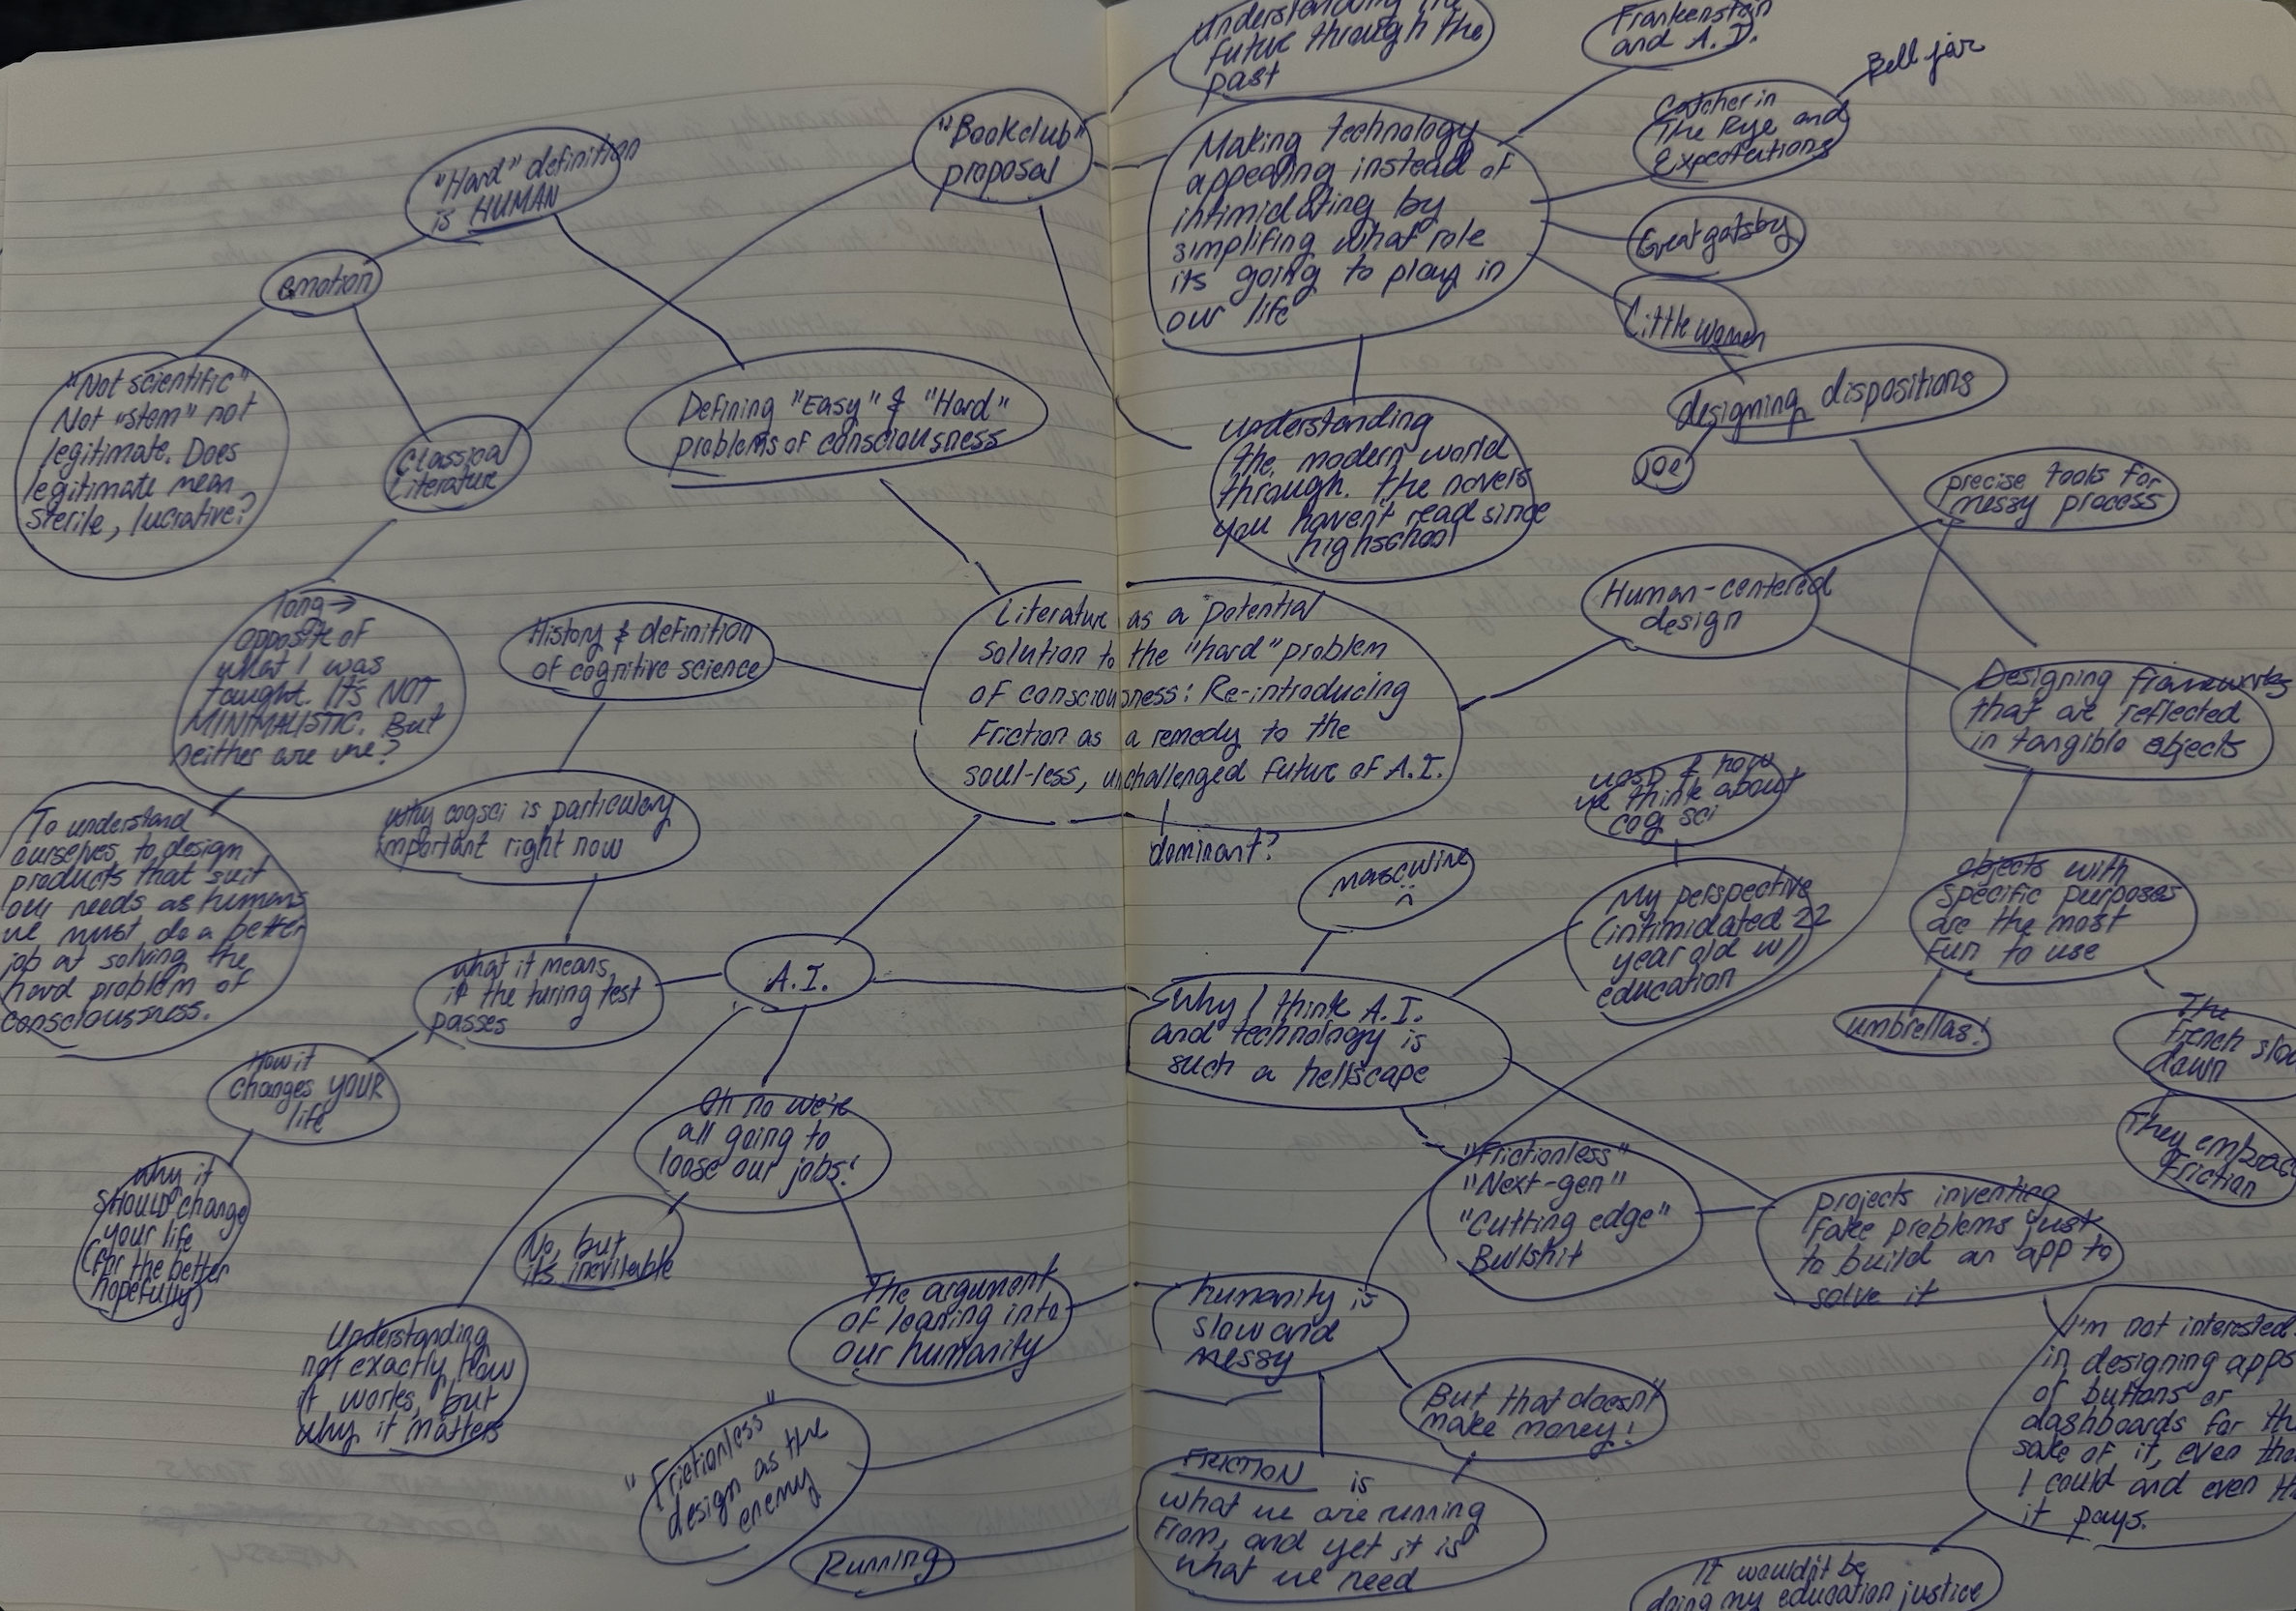 future through the
past
Frankenstein
and A.I.
Bell jar
Catcher in
The Rye and
Expectations
Great gatsby
Little women
"Bookclub"
proposal
Making technology
appealing instead of
intimidating by
simplifing what role
its going to play in
our life
"Hard" definition
is HUMAN
emotion
"Not scientific"
Not "stem" not
legitimate. Does
legitimate mean
sterile, lucrative?
Classical
Literature
Defining "Easy" & "Hard"
problems of consciousness
understanding
the modern world
through. the novels
you haven't read since
highschool
designing dispositions
joe
precise tools for
messy process
Human-centered
design
Designing frameworks
that are reflected
in tangible objects
long→
opposite of
what I was
taught. It's NOT
MINIMALISTIC. But
neither are we?
History & definition
of cognitive science
Literature as a potential
solution to the "hard" problem
of consciousness: Re-introducing
Friction as a remedy to the
soul-less, unchallenged future of A.I.
dominant?
To understand
ourselves, to design
products that suit
our needs as humans
we must do a better
job at solving the
hard problem of
consciousness.
why cogsci is particulary
important right now
what it means
if the turing test
passes
A.I.
How it
changes YOUR
life
why it
SHOULD change
your life
(for the better
hopefully)
Oh no we're
all going to
loose our jobs!
No, but
its inevitable
The argument
of leaning into
our humanity
Understanding
not exactly how
it works, but
why it matters
"Frictionless"
design as the
enemy
Running
masculine
& how
we think about
cog sci
My perspective
(intimidated 22
year old w/
education
Why I think A.I.
and technology is
such a hellscape
objects with
specific purposes
are the most
fun to use
umbrellas!
The
French slow
down
They embrac
Friction
"Frictionless"
"Next-gen"
"Cutting edge"
Bullshit
projects inventing
fake problems just
to build an app to
solve it
humanity is
slow and
messy
But that doesn't
make money!
FRICTION is
what we are running
from, and yet it is
what we need
I'm not interested
in designing apps
of buttons or
dashboards for the
sake of it, even tho
I could and even th
it pays.
It wouldn't be
doing my education justice